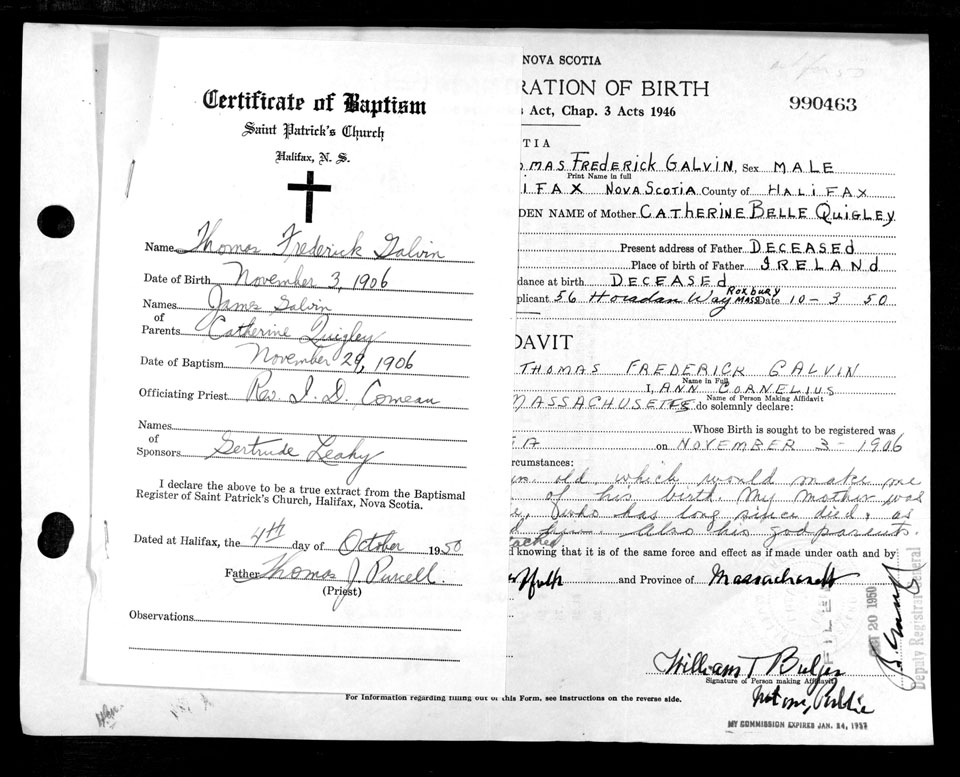 Certificate of Baptism
Saint Patrick's Church
Halifax, N. S.
Name Thomas Frederick Galvin
Date of Birth November 3, 1906
Names James Galvin
of
Parents Catherine Quigley
Date of Baptism November 29, 1906
Officiating Priest Rev. I. D. Comeau
Names
of
Sponsors Gertrude Leahy
I declare the above to be a true extract from the Baptismal
Register of Saint Patrick's Church, Halifax, Nova Scotia.
Dated at Halifax, the 4th day of October 1950
Father Thomas J. Purcell
(Priest)
Observations
NOVA SCOTIA
RATION OF BIRTH
990463
Act, Chap. 3 Acts 1946
TIA
OMAS FREDERICK GALVIN, Sex MALE
Print Name in full
IFAX NOVA SCOTIA County of HALIFAX
DEN NAME of Mother CATHERINE BELLE QUIGLEY
Present address of Father DECEASED
Place of birth of Father IRELAND
dance at birth DECEASED
plicant 56 Way ROXBURY MASS Date 10-3 50
DAVIT
THOMAS FREDERICK GALVIN
Name in Full
I, ANN CORNELIUS
Name of Person Making Affidavit
MASSACHUSETTS do solemnly declare:
Whose Birth is sought to be registered was
IA on NOVEMBER 3-1906
circumstances:
old, which would make me
of his birth. My mother was
, who has long since died, as
him. Also his godparents.
knowing that it is of the same force and effect as if made under oath and by
and Province of Massachusetts
FILED
OCT 20 1950
Deputy Registrar General
William T Bulger
Signature of Person making Affidavit
Notary Public
MY COMMISSION EXPIRES JAN. 24, 1957
For Information regarding filling out of this Form, see instructions on the reverse side.